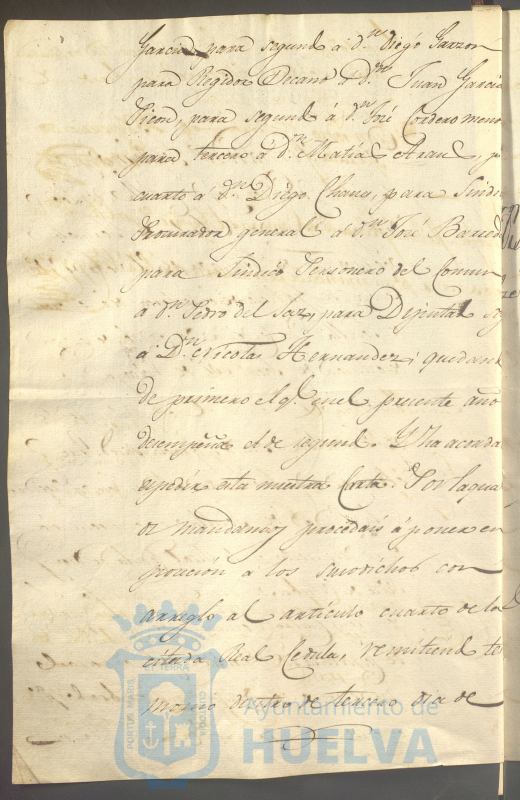 Garcia, para segund a d.n Diego Garzon
para Regidor Decano a d.n Juan Garcia
para segund á d.n José Cordero meno
para tercero a d.n Matias Arau, p
cuarto a d.n Diego Chaus, para Sindi
Procurador general a d.n José Barced
para Sindico Personero del Comun
a d.n Pedro del Saz, para Diputad
a D.n Nicolas Hernandez, quedand
de primero el q.e en el presente año
desempeña el de segund. Y ha acorda
expedir esta nuestra Carta. Por la qua
os mandamos procedais á poner en
posesion a los susodichos con
arreglo al artículo cuarto de la
citada Real Cedula, remitiend te
monio dentro de tercero dia de
PORTUS MARIS
ET TERRAE CUSTODIA
Ayuntamiento de
HUELVA